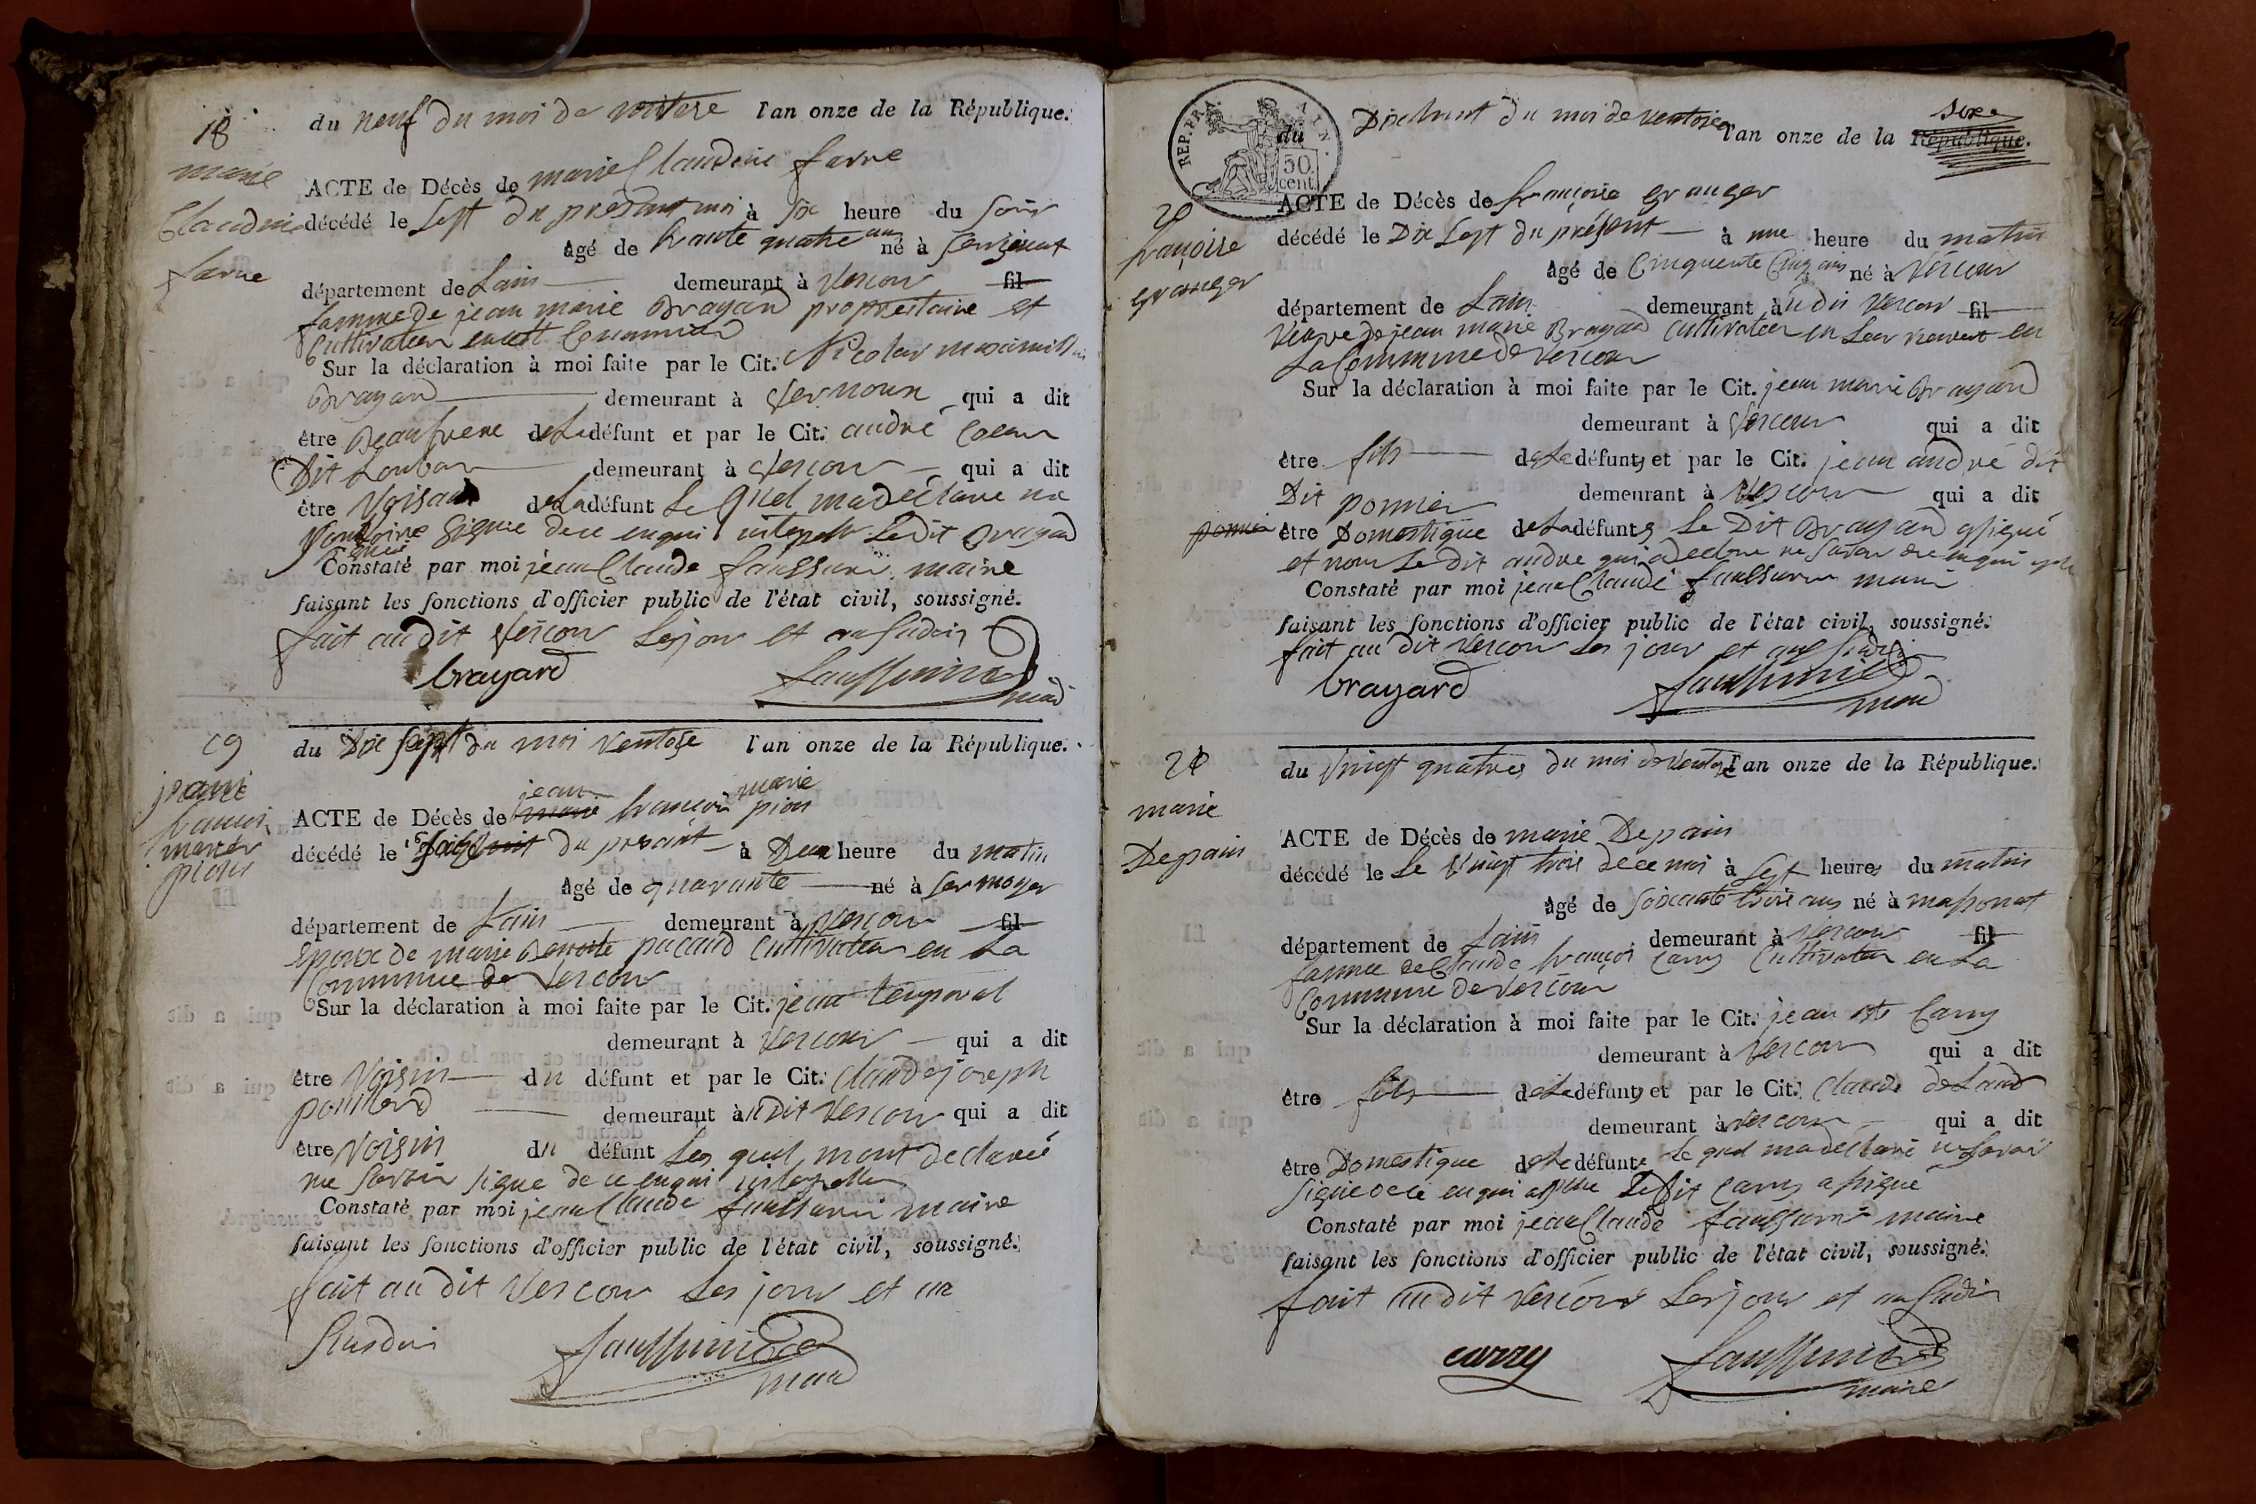 18
marie
Claudine
farne
du neuf du moi de l'an onze de la République.
ACTE de Décès de marie Claudine farne
décédé le Sept du présent moi à Six heure du Soir
agé de trante quatre ans né à
département de Lain demeurant à Vescour fil
famme de jean marie Brayard propriétaire et
Cultivateur
Sur la déclaration à moi faite par le Cit. Nicolas
Brayard demeurant à Vernoux qui a dit
être Beaufrere de La défunt et par le Cit. andré
Dit Loubat demeurant à Vescour qui a dit
être Voisin de La défunt Le quel ma déclaré ne
Signé de ce enqui Ledit Brayard
Constaté par moi jean Claude maire
faisant les fonctions d'officier public de l'état civil, soussigné.
fait au dit Vescour Les jour et an Sudis
brayard
19
jean
francois
marie
pion
du Dix Sept du moi Ventose l'an onze de la République.
jean marie
ACTE de Décès de marie francois pion
décédé le du présent à Deux heure du matin
agé de quarante né à Sermoyer
département de Lain demeurant à Vescour fil
Epoux de marie pacaud Cultivateur en La
Commune de Vescour
Sur la déclaration à moi faite par le Cit. jean temporal
demeurant à Vescour qui a dit
être Voisin du défunt et par le Cit. Claude joseph
demeurant àu dit Vescour qui a dit
être Voisin du défunt Les quel mont declaré
ne Savoir signe de ce enqui
Constaté par moi jean Claude maire
faisant les fonctions d'officier public de l'état civil, soussigné.
fait au dit Vescour Les jour et an
Susdis
REP. FRA. AIN.
50 cent
20
françoise
granger
du Dix huit du moi de ventose l'an onze de la République.
ACTE de Décès de françoise granger
décédé le Dix Sept du présent à une heure du matin
agé de Cinquente Cinq ans né à Vescour
département de Lain demeurant àu dit Vescour fil
Veuve de jean marie Brayard Cultivateur en
La Commune de Vescour
Sur la déclaration à moi faite par le Cit. jean marie Brayard
demeurant à Vescour qui a dit
être fils de La défunt et par le Cit. jean andré dit
Dit ponnier demeurant à Vescour qui a dit
être Domestique de La défunt Le Dit Brayard a signé
et non Le Dit andre qui a declare ne Savoir de ce enqui
Constaté par moi jean Claude
faisant les fonctions d'officier public de l'état civil, soussigné.
fait au dit Vescour Les jour et an
brayard
21
marie
Depain
du Vingt quatre du moi de Ventose l'an onze de la République.
ACTE de Décès de marie Depain
décédé le Le Vingt trois de ce moi à Sept heures du matin
agé de Soixante trois ans né à
département de Lain demeurant à Vescour fil
famme de Claude françois Carry Cultivateur en La
Commune de Vescour
Sur la déclaration à moi faite par le Cit. jean Carry
demeurant à Vescour qui a dit
être fils de La défunt et par le Cit. Claude
demeurant à Vescour qui a dit
être Domestique de La défunt Le quel ma déclaré ne Savoir
Signe de ce enqui Ledit Carry a signé
Constaté par moi jean Claude maire
faisant les fonctions d'officier public de l'état civil, soussigné.
fait au dit Vescour Les jour et an Sudis
carry
maire